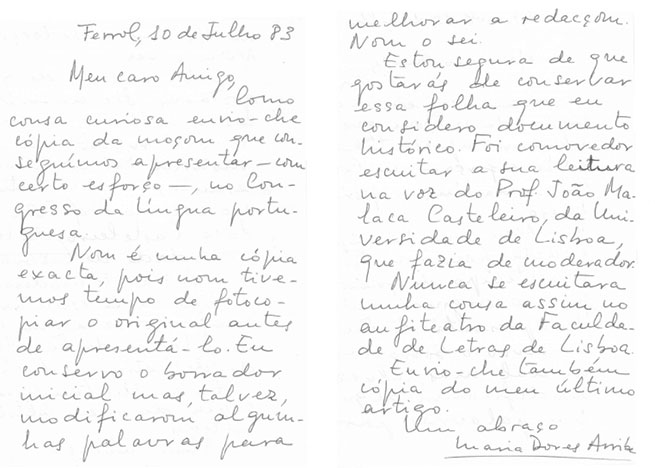 Ferrol, 10 de Julho 83
Meu caro Amigo,
Como
cousa curiosa envio-che
cópia da moçom que con-
seguimos apresentar—com
certo esforço—, no Con-
gresso da língua portu-
guesa.
Nom é unha cópia
exacta, pois nom tive-
mos tempo de fotoco-
piar o original antes
de apresentá-lo. Eu
conservo o borrador
inicial mas, talvez,
modificarom algun-
has palavras para
melhorar a redacçom.
Nom o sei.
Estou segura de que
gostarás de conservar
essa folha que eu
considero documento
histórico. Foi comovedor
escuitar a sua leitura
na voz do Prof. João Ma-
laca Casteleiro, da Uni-
versidade de Lisboa,
que fazia de moderador.
Nunca se escuitara
unha cousa assim no
anfiteatro da Faculda-
de de Letras de Lisboa.
Envio-che também
cópia do meu último
artigo.
Um abraço
Maria Dores Arribe